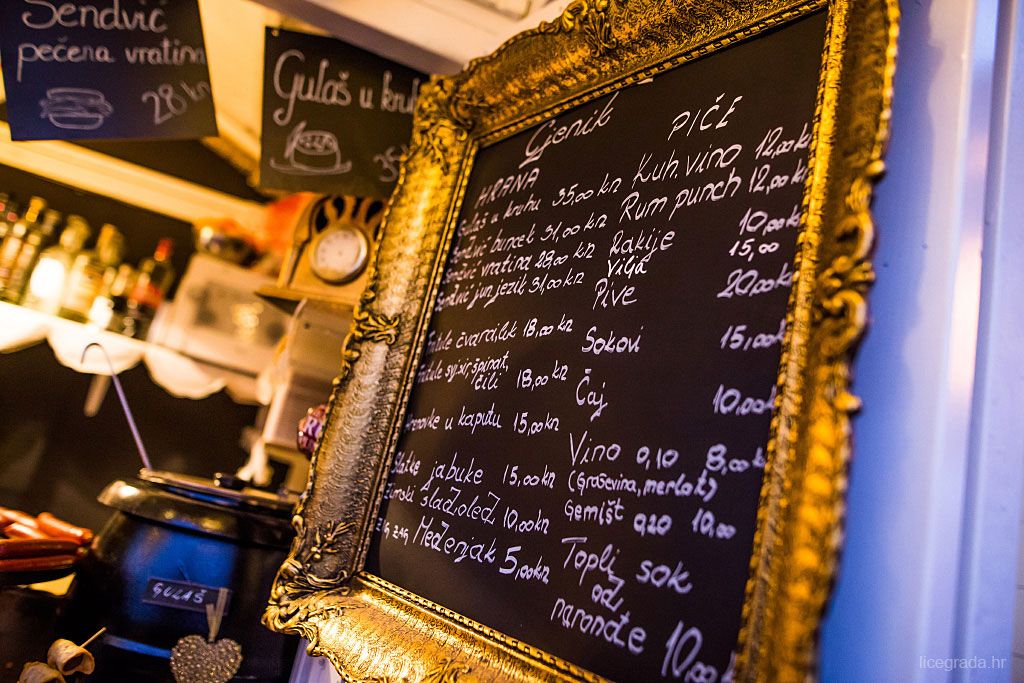 Sendvič
pečena vratina
28 kn
Gulaš u kruh
35
Cjenik
HRANA
Gulaš u kruhu 35,00 kn
Sendvič buncek 31,00 kn
Sendvič vratina 28,00 kn
Sendvič jun. jezik 31,00 kn
čvarci, luk 18,00 kn
svj. sir, špinat,
čili 18,00 kn
Hrenovke u kaputu 15,00 kn
Slatke jabuke 15,00 kn
Zimski sladoled 10,00 kn
Medenjak 5,00 kn
PIĆE
Kuh. vino 12,00 kn
Rum punch 12,00 kn
Rakije 10,00 kn
Vilja 15,00
Pive 20,00 kn
Sokovi 15,00 k
Čaj 10,00 k
Vino 0,10 8,00 k
(Graševina, merlot)
Gemišt 0,20 10,00
Topli sok
od
naranđe 10,00
GULAŠ
licegrada.hr